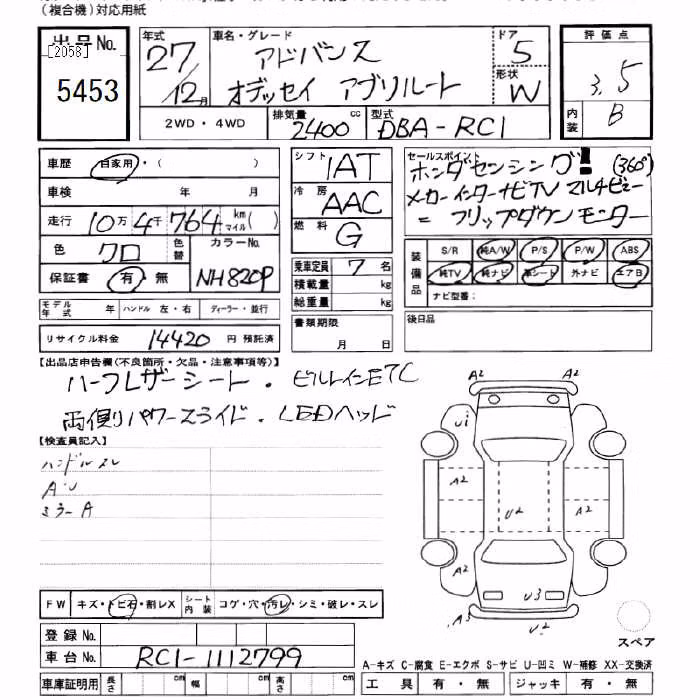 (複合機)対応用紙
出品No.
[2058]
5453
年式
27/12月
車名・グレード
アドバンス
オデッセイ アブソルート
ドア
5
形状
W
評価点
3.5
内装
B
2WD・4WD
排気量
2400cc
型式
DBA-RC1
車歴 自家用・( )
車検 年 月
走行 10万4千764 km マイル( )
色 クロ 色替 カラーNo.
保証書 有・無 NH820P
シフト IAT
冷房 AAC
燃料 G
乗車定員 7名
積載量 kg
総重量 kg
書類期限
月 日
セールスポイント
ホンダセンシング! (360°)
メーカーインターナビTV マルチビュー
=フリップダウンモニター
装備品
S/R 純A/W P/S P/W ABS
純TV 純ナビ 革シート 外ナビ エアB
ナビ型番:
後日品
モデル年式 年 ハンドル 左・右 ディーラー・並行
リサイクル料金 14420円 預託済
【出品店申告欄(不良箇所・欠品・注意事項等)】
ハーフレザーシート. ビルトインETC
両側パワースライド. LEDヘッド
【検査員記入】
ハンドルスレ
A.U
ミラーA
A2 A2
U1
A2 A2
U2 A2
A2
U3
A3 U2
スペア
FW キズ・トビ石・割レX シート内装 コゲ・穴・汚レ・シミ・破レ・スレ
登録No.
車台No. RC1-1112799
車庫証明用 長さ cm 幅 cm 高さ cm
A-キズ C-腐食 E-エクボ S-サビ U-凹ミ W-補修 XX-交換済
工具 有・無 ジャッキ 有・無